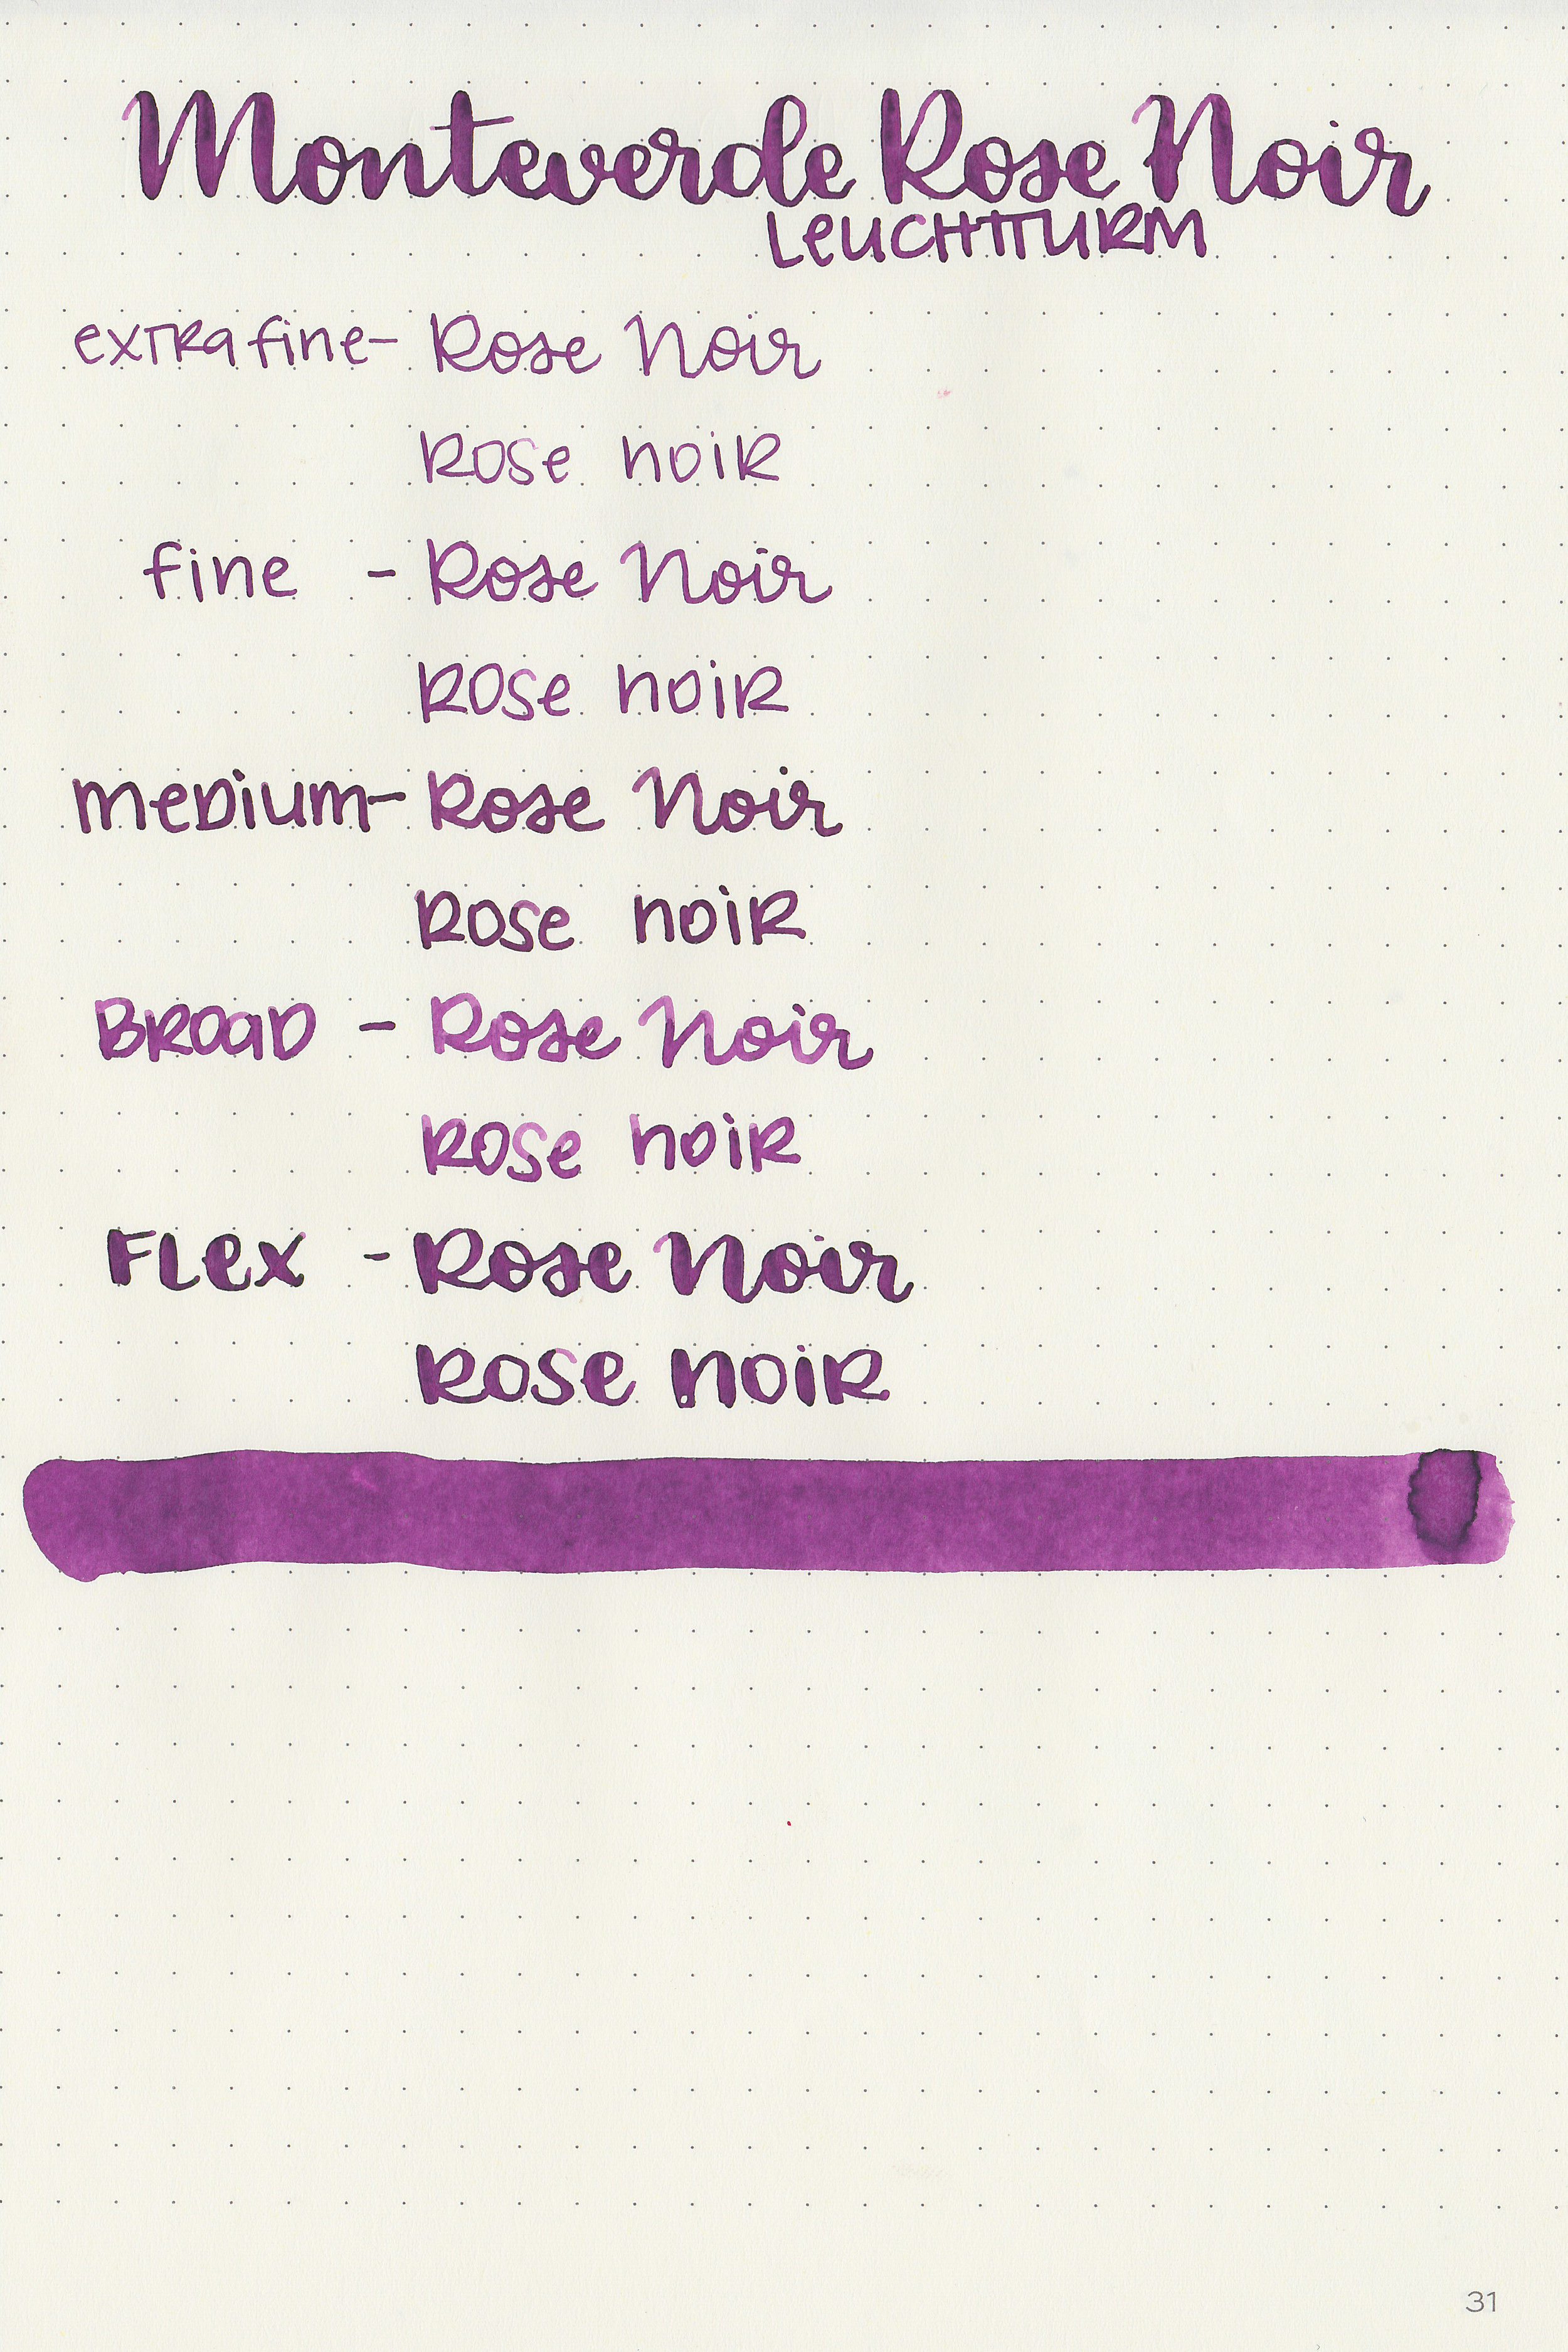 Monteverde Rose Noir
LEUCHTTURM
extra fine- Rose Noir
Rose noir
fine - Rose Noir
Rose noir
medium- Rose Noir
Rose noir
Broad - Rose Noir
Rose noir
Flex - Rose Noir
Rose noir
31